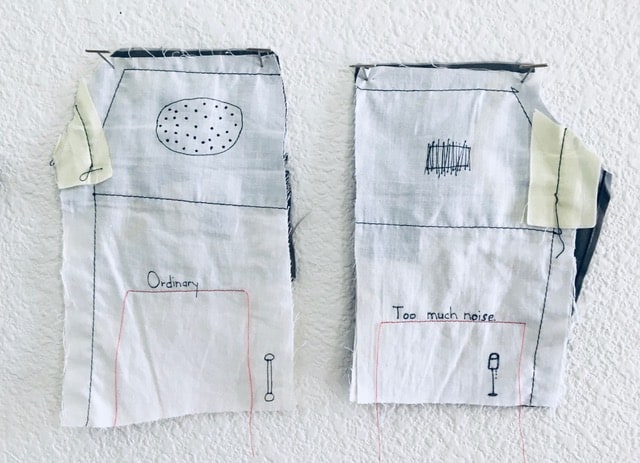 Ordinary
Too much noise.